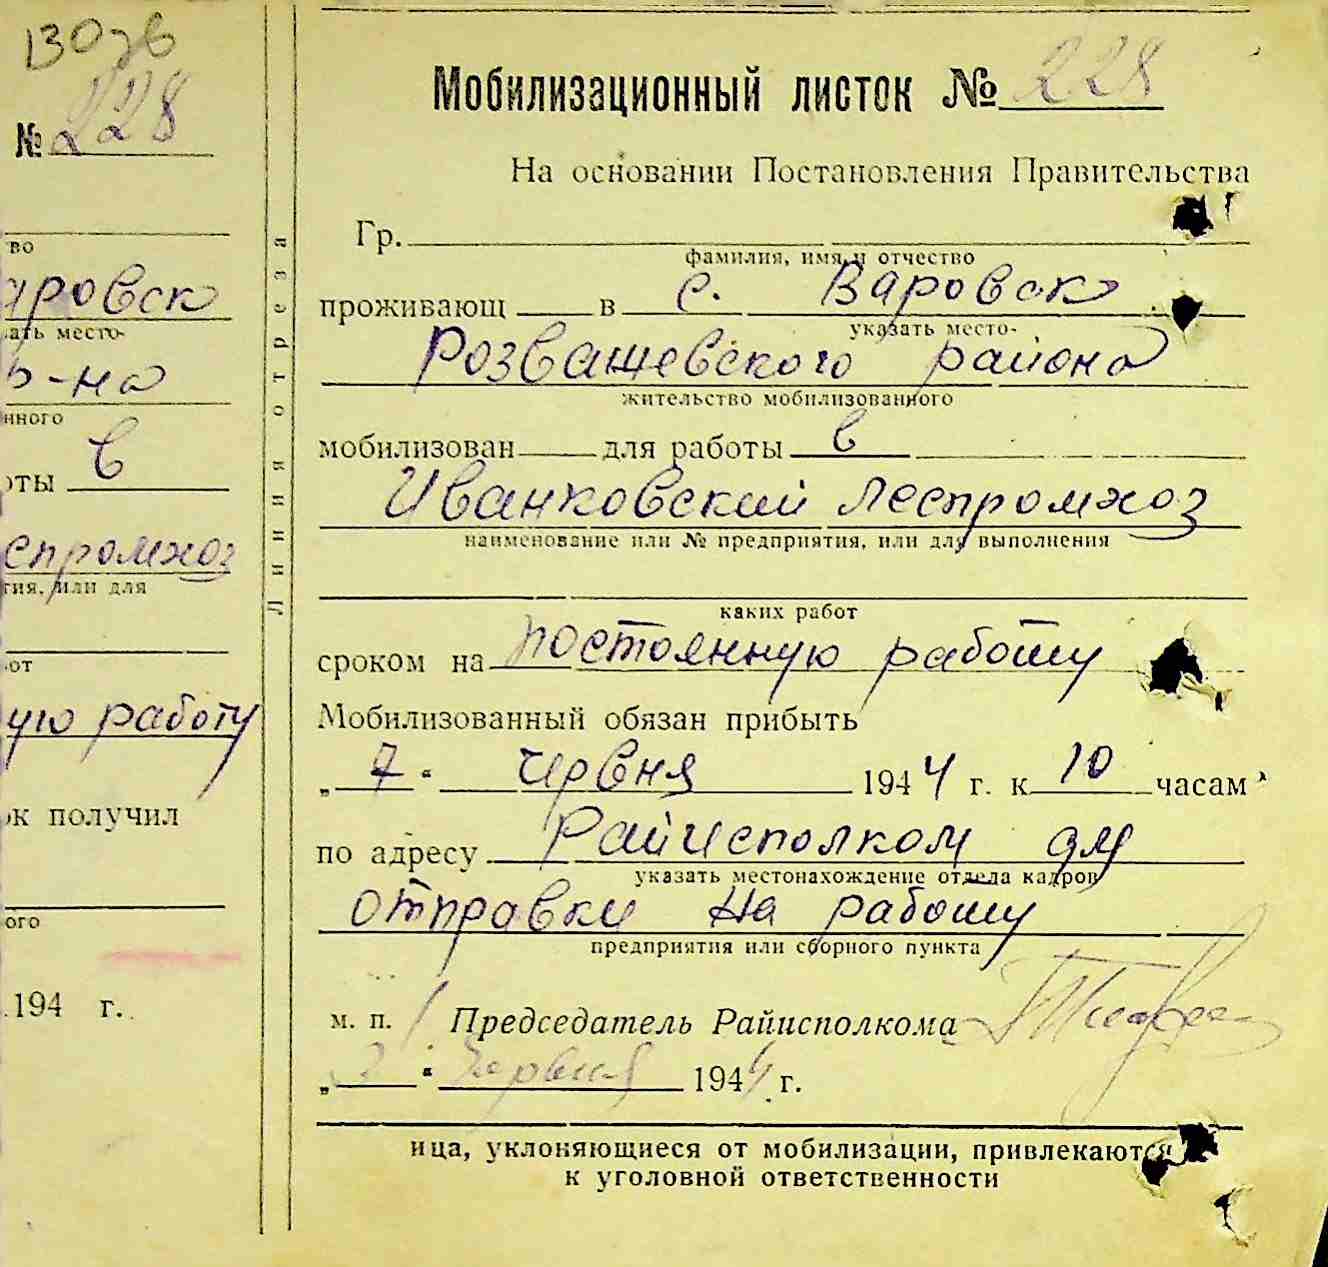 228
№ 228
во
аровск
ать место-
р-на
нного
оты в
еспромхоз
тия, или для
от
ую работу
ок получил
ого
194 г.
Линия отреза
Мобилизационный листок № 228
На основании Постановления Правительства
Гр.
фамилия, имя и отчество
проживающ в с. Варовск
указать место-
Розважевского района
жительство мобилизованного
мобилизован для работы в
Иванковский леспромхоз
наименование или № предприятия, или для выполнения
каких работ
сроком на постоянную работу
Мобилизованный обязан прибыть
„7“ червня 1944 г. к 10 часам
по адресу Райисполком для
указать местонахождение отдела кадров
отправки на работу
предприятия или сборного пункта
м. п. Председатель Райисполкома
„ “ червня 1944 г.
ица, уклоняющиеся от мобилизации, привлекаются
к уголовной ответственности